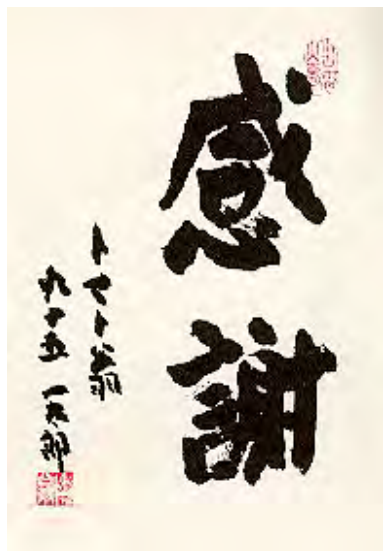 感謝
トマト翁
九十五 一郎